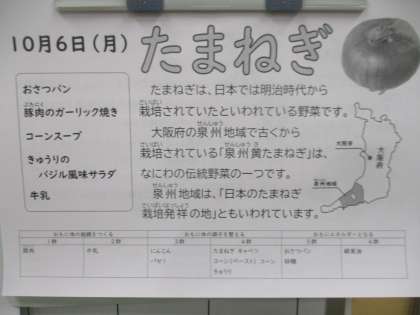 10月6日(月)
たまねぎ
おさつパン
豚肉のガーリック焼き
コーンスープ
きゅうりの
バジル風味サラダ
牛乳
たまねぎは、日本では明治時代から
栽培されていたといわれている野菜です。
大阪府の泉州地域で古くから
栽培されている「泉州黄たまねぎ」は、
なにわの伝統野菜の一つです。
泉州地域は、「日本のたまねぎ
栽培発祥の地」ともいわれています。
大阪市
大阪府
泉州地域
おもに体の組織をつくる おもに体の調子を整える おもにエネルギーとなる
1群 2群 3群 4群 5群 6群
豚肉 牛乳 にんにく たまねぎ キャベツ おさつパン 綿実油
パセリ コーン(ペースト) コーン 砂糖
きゅうり